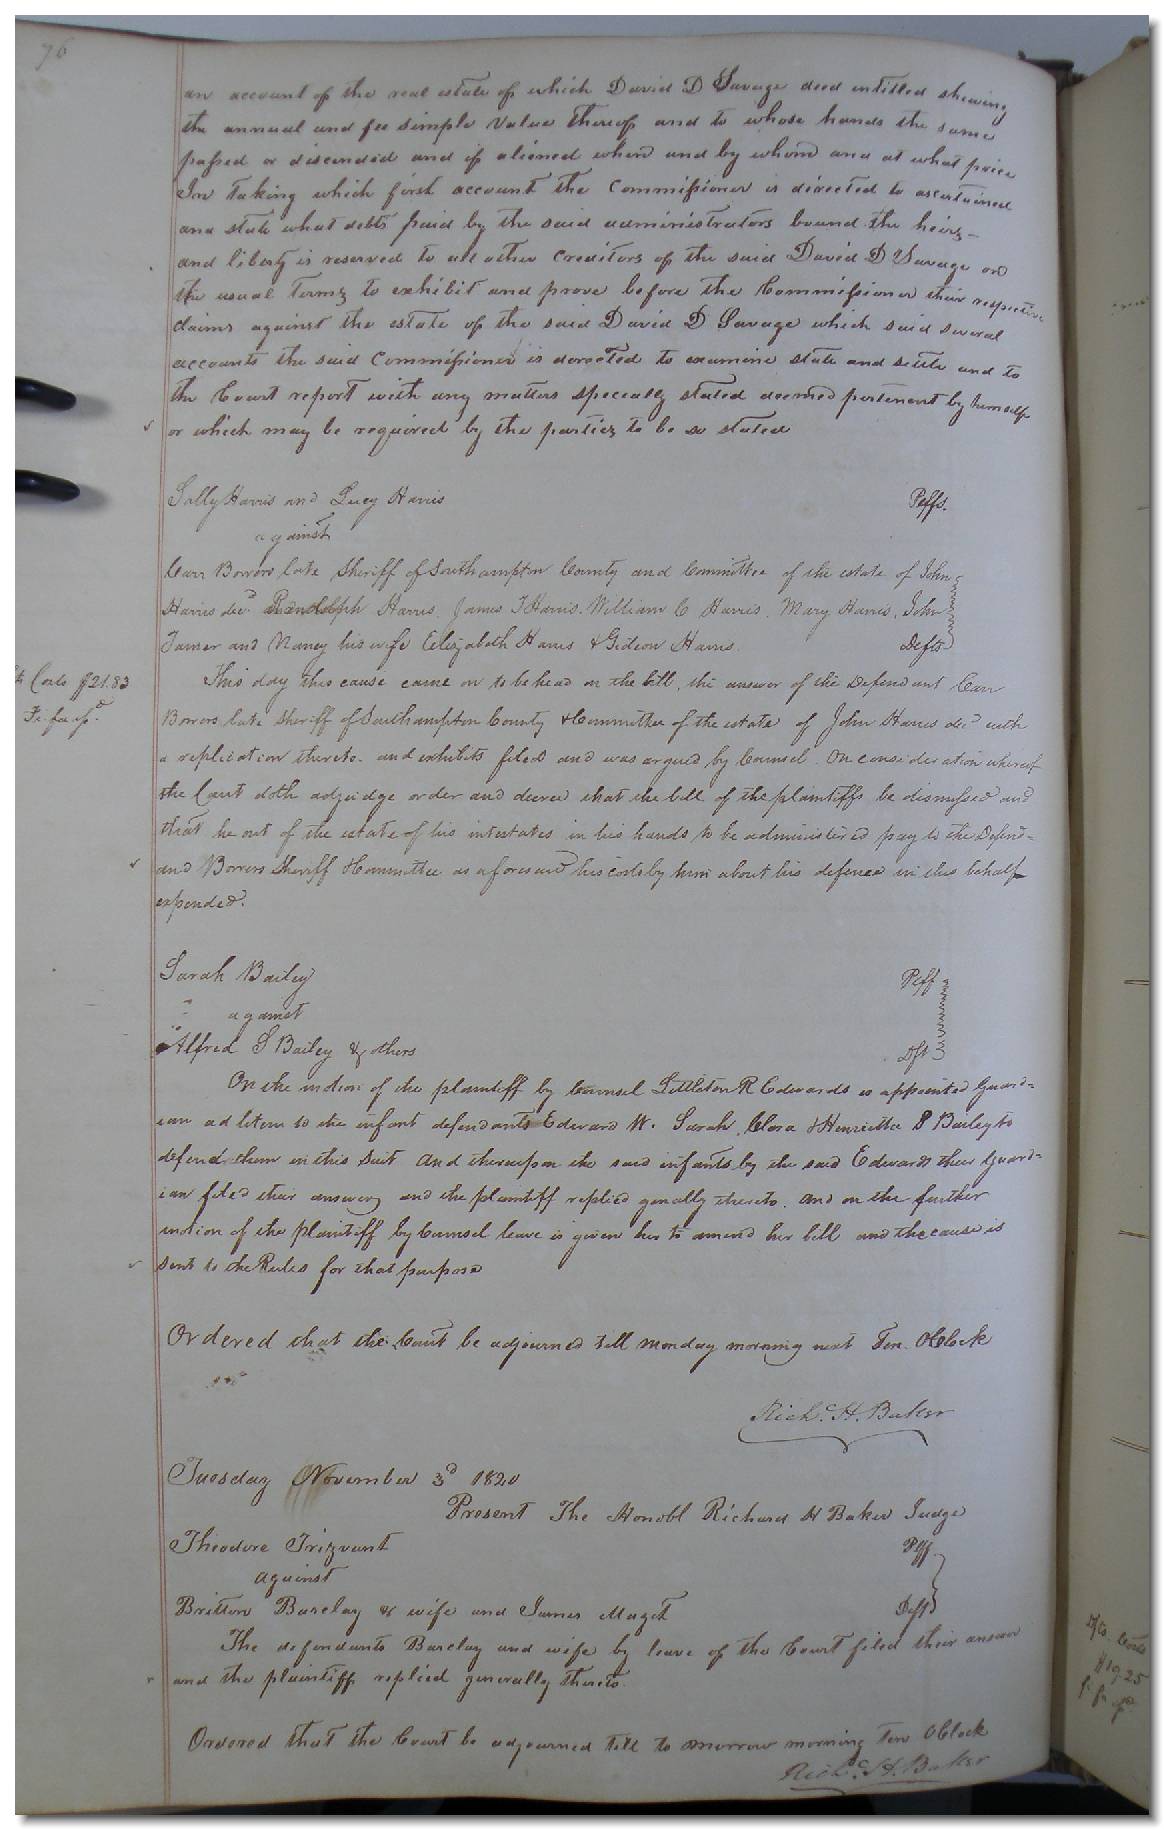 76
an account of the real estate of which David D Savage deed intitled shewing
the annual and fee simple value thereof and to whose hands the same
passed or discended and if aliened when and by whom and at what price
In taking which first account the Commissioner is directed to ascertained
and state what debts paid by the said administrators bound the heirs –
and liberty is reserved to all other Creditors of the said David D Savage on
the usual terms to exhibit and prove before the Commissioner their respective
claims against the estate of the said David D Savage which said several
accounts the said Commissioner is dorected to examine state and settle and to
the Court report with any matters specially stated deemed pertenent by himself
or which may be required by the parties to be so stated
Sally Harris and Lucy Harris Plffs.
against
Carr Bowers late Sheriff of Southampton County and Committee of the estate of John
Harris decd Randolph Harris, James T Harris, William C Harris, Mary Harris, John
Turner and Nancy his wife Elizabeth Harris & Gideon Harris. Defts
Costs $21.83
Fi fa
This day this cause came on to be head on the bill, the answer of the Defendant Carr
Bowers late Sheriff of Southampton County & Committee of the estate of John Harris decd with
a replication thereto. and exhibits filed and was argued by Counsel. On consideration whereof
the Court doth adjudge order and decree that the bill of the plaintiffs be dismissed and
that he out of the estate of his intestates in his hands to be administered pay to the Defend=
and Bowers Sheriff & Committee as aforesaid his costs by him about his defence in this behalf
expended.
Sarah Bailey Plff
against
Alfred S Bailey & others Dft
On the motion of the plaintiff by Counsel Littleton R Edwards is appointed Guard=
ian ad litem to the infant defendants Edward W. Sarah, Clora & Henrietta B Bailey to
defend them in this Suit and thereupon the said infants by the said Edwards their Guard=
ian filed their answers and the plaintiff replied genally thereto. and on the further
motion of the plaintiff by Counsel leave is given her to amend her bill and the cause is
sent to the Rules for that purpose
Ordered that the Court be adjourned till Monday morning next Ten OClock
Richd. H. Baker
Tuesday November 3d 1840
Present The Honobl Richard H Baker Judge
Theodore Trizvant Plff
against
Britton Barclay & wife and James Maget Defts
The defendants Barclay and wife by leave of the Court filed their answer
and the plaintiff replied generally thereto.
Ordered that the Court be adjourned till to morrow morning Ten OClock
Richd. H. Baker
Costs
$19.25